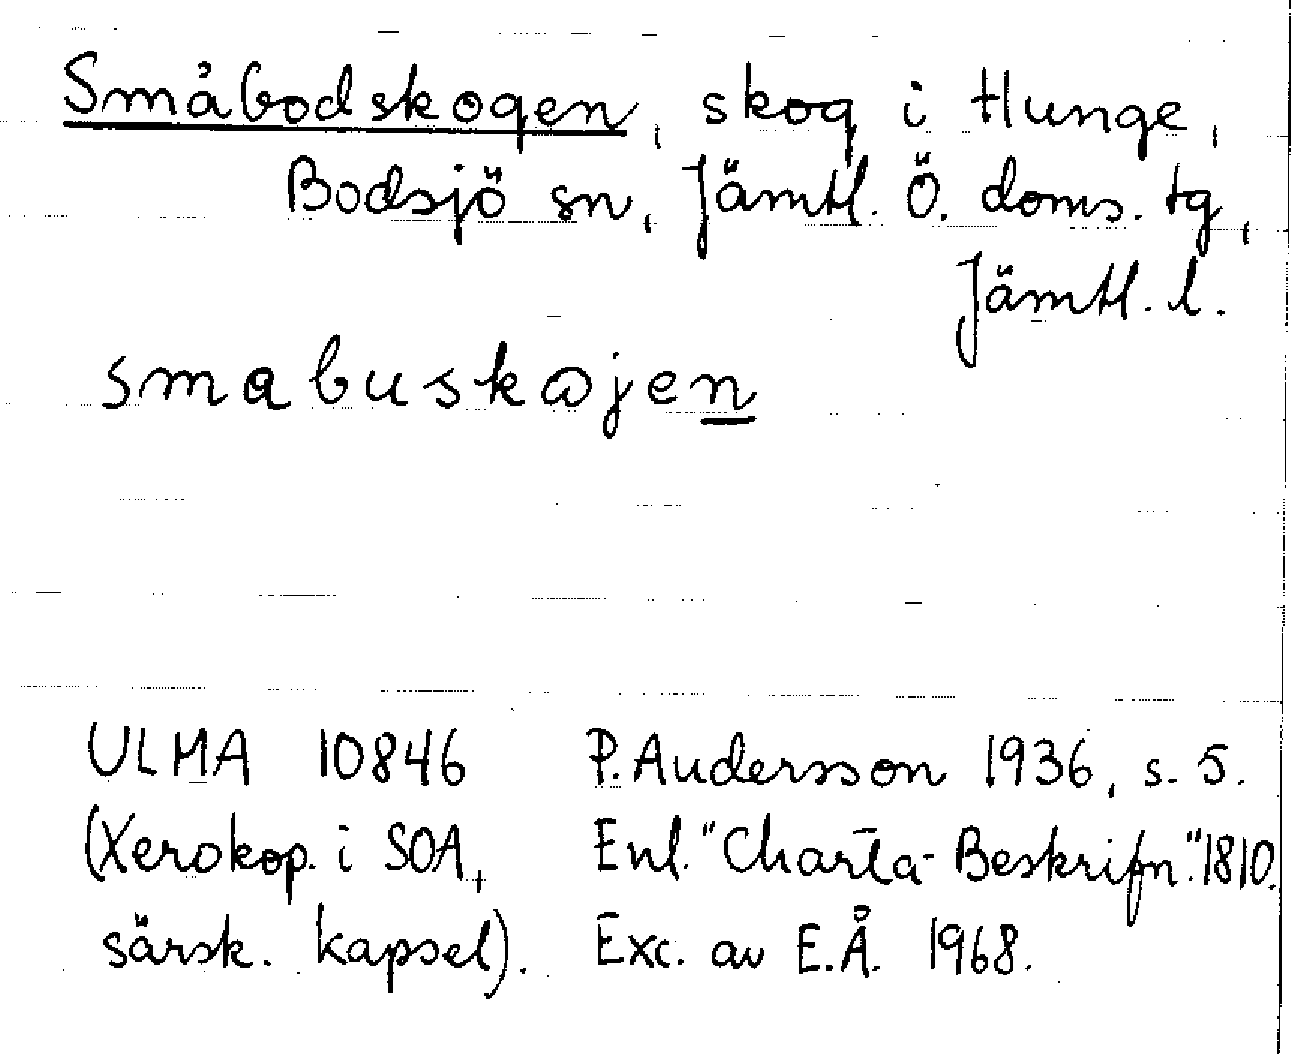 Småbodskogen, skog i Hunge,
Bodsjö sn, Jämtl. Ö. doms. tg,
Jämtl. l.
smabuskɷjen
ULMA 10846 P. Andersson 1936, s. 5.
(Xerokop. i SOA, Enl. "Charta-Beskrifn." 1810.
särsk. kapsel). Exc. av E.Å. 1968.